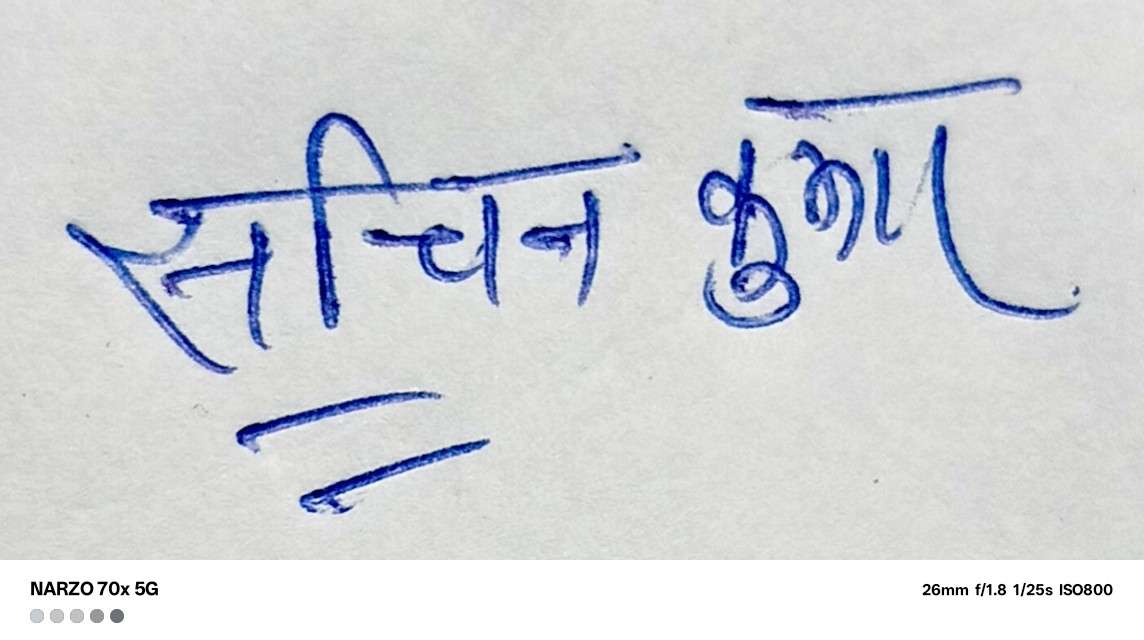 सचिन कुमार
NARZO 70x 5G
26mm f/1.8 1/25s ISO800